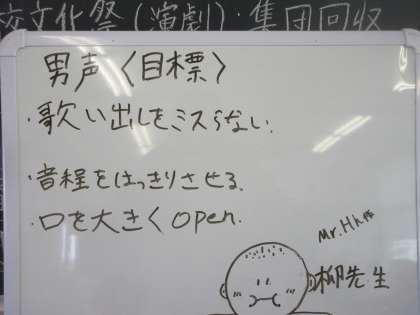 交文化祭(演劇)・集団回収
男声〈目標〉
・歌い出しをミスらない.
・音程をはっきりさせる.
・口を大きくOpen.
柳先生